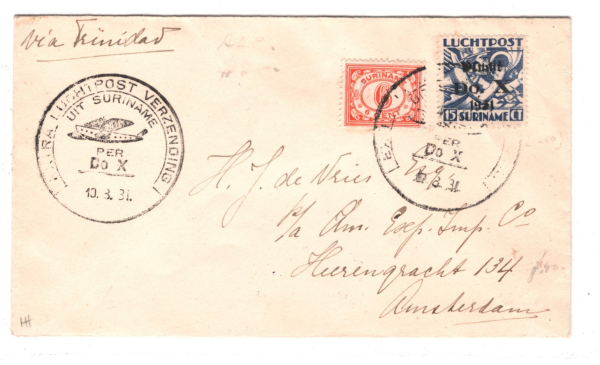 via Trinidad
EXTRA LUCHTPOST VERZENDING
UIT SURINAME
PER
Do X
10.8.31.
SURINAME
6
6 CENT
LUCHTPOST
Vlucht
Do X
1931
15 SURINAME Ct
PER
Do X
10.8.31.
H. J. de Vries Esq.
p/a Am. Exp. Imp. Co
Heerengracht 134
Amsterdam